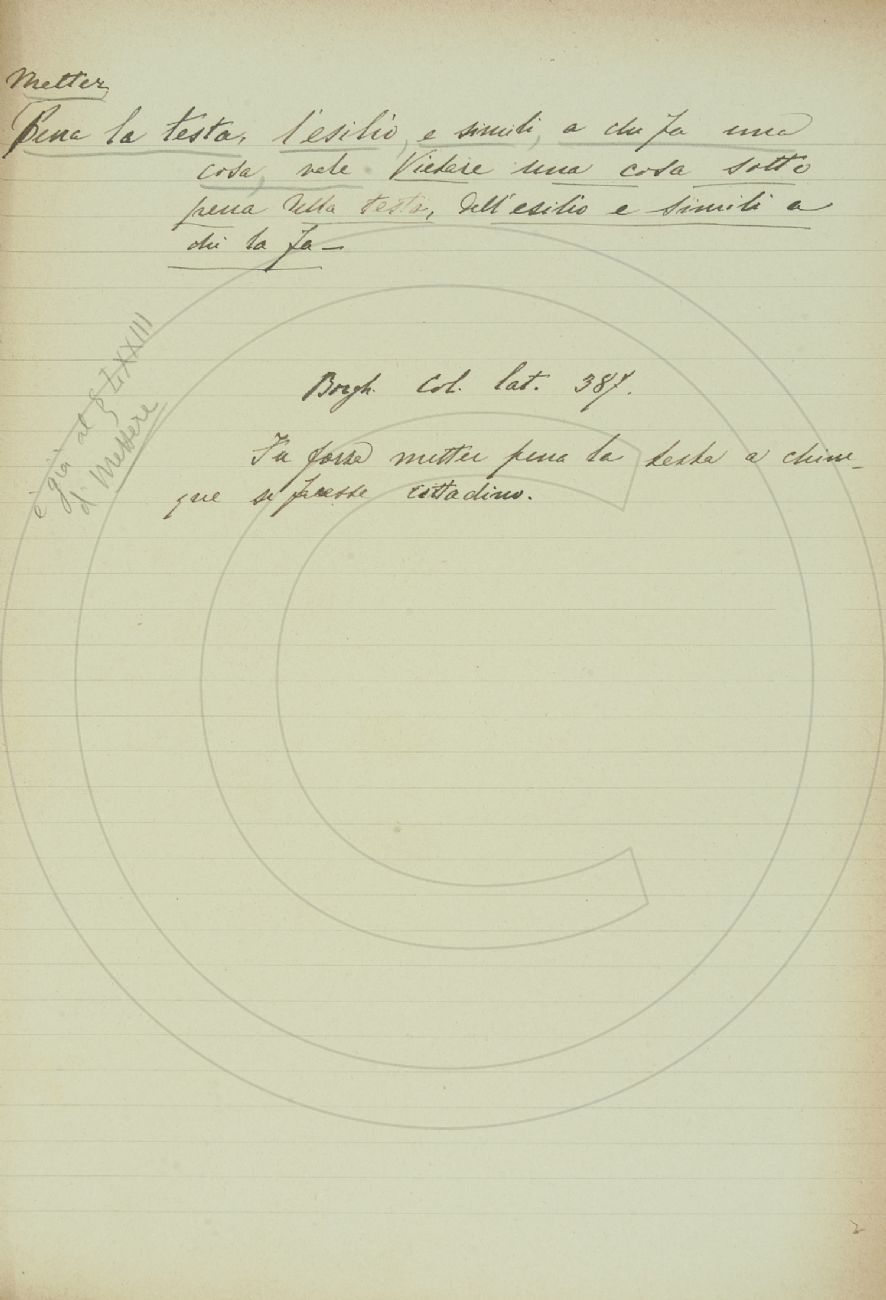 Metter
Pena la testa, l'esilio, e simili, a chi fa una
cosa, vale Vietare una cosa sotto
pena della testa, dell'esilio e simili a
chi la fa —
è già al § LXXIII
di Mettere
Borgh. Col. lat. 387.
Fu forza metter pena la testa a chiun-
que si facesse cittadino.
2